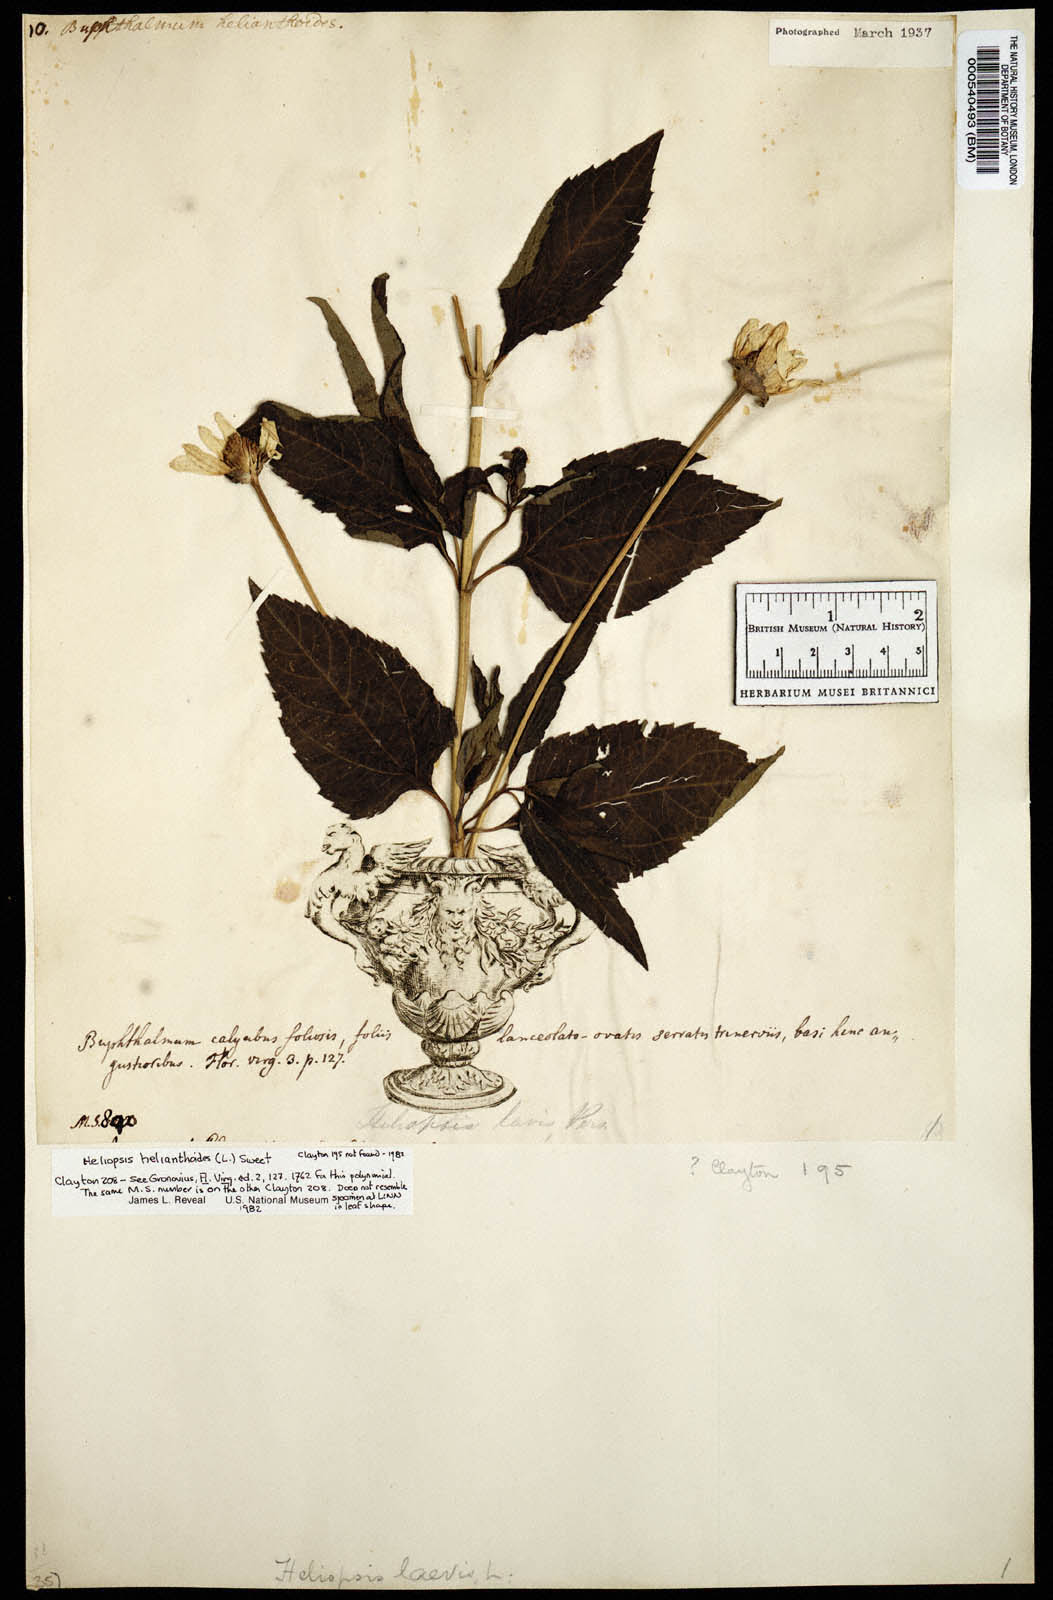 10. Buphthalmum helianthoides.
Photographed March 1937
THE NATURAL HISTORY MUSEUM, LONDON
DEPARTMENT OF BOTANY
000540493 (BM)
1 2
BRITISH MUSEUM (NATURAL HISTORY)
1 2 3 4 5
HERBARIUM MUSEI BRITANNICI
Buphthalmum calycibus foliosis, foliis lanceolato-ovatis serratis trinerviis, basi hinc an=
gustioribus. Flor. virg. 3. p. 127.
M.S.
Heliopsis laevis, Pers
Heliopsis helianthoides (L.) Sweet Clayton 195 not found - 1982
Clayton 208 - see Gronovius, Fl. Virg. ed. 2, 127. 1762 for this polynomial.
The same M.S. number is on the other Clayton 208. Does not resemble
James L. Reveal U.S. National Museum specimen at LINN
1982 in leaf shape.
? Clayton 195
Heliopsis laevis, L.
1